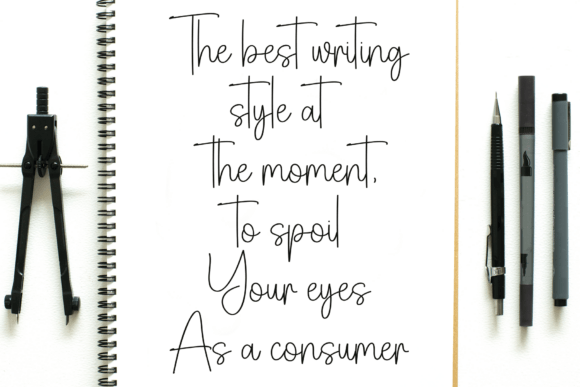 The best writing
style at
the moment,
to spoil
Your eyes
As a consumer